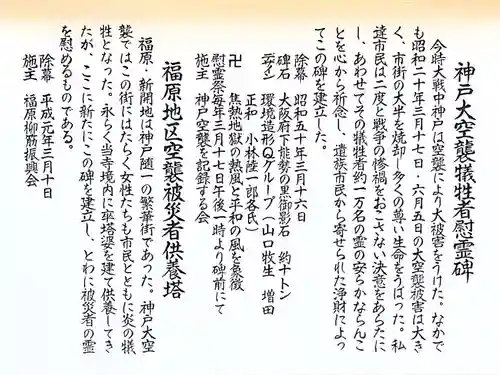 神戸大空襲犠牲者慰霊碑
今時大戦中神戸は空襲により大被害をうけた。なかで
も昭和二十年三月十七日・六月五日の大空襲被害は大き
く、市街の大半を焼却し多くの尊い生命をうばった。私
達市民は二度と戦争の惨禍をおこさない決意をあらたに
し、あわせてその犠牲者約一万名の霊の安らかならんこ
とを心から祈念し、遺族市民から寄せられた浄財によっ
てこの碑を建立した。
除幕 昭和五十年三月十六日
碑石 大阪府下能勢の黒御影石 約十トン
デザイン 環境造形Qグループ(山口牧生 増田
正和 小林陸一郎各氏)
卍 焦熱地獄の熱風と平和の風を象徴
慰霊祭毎年三月十七日午後一時より碑前にて
施主 神戸空襲を記録する会
福原地区空襲被災者供養塔
福原、新開地は神戸随一の繁華街であった。神戸大空
襲ではこの街にはたらく女性たちも市民とともに炎の犠
牲となった。永らく当寺境内に卒塔婆を建て供養してき
たが、ここに新たにこの碑を建立し、とわに被災者の霊
を慰めるものである。
除幕 平成元年三月十日
施主 福原柳筋振興会